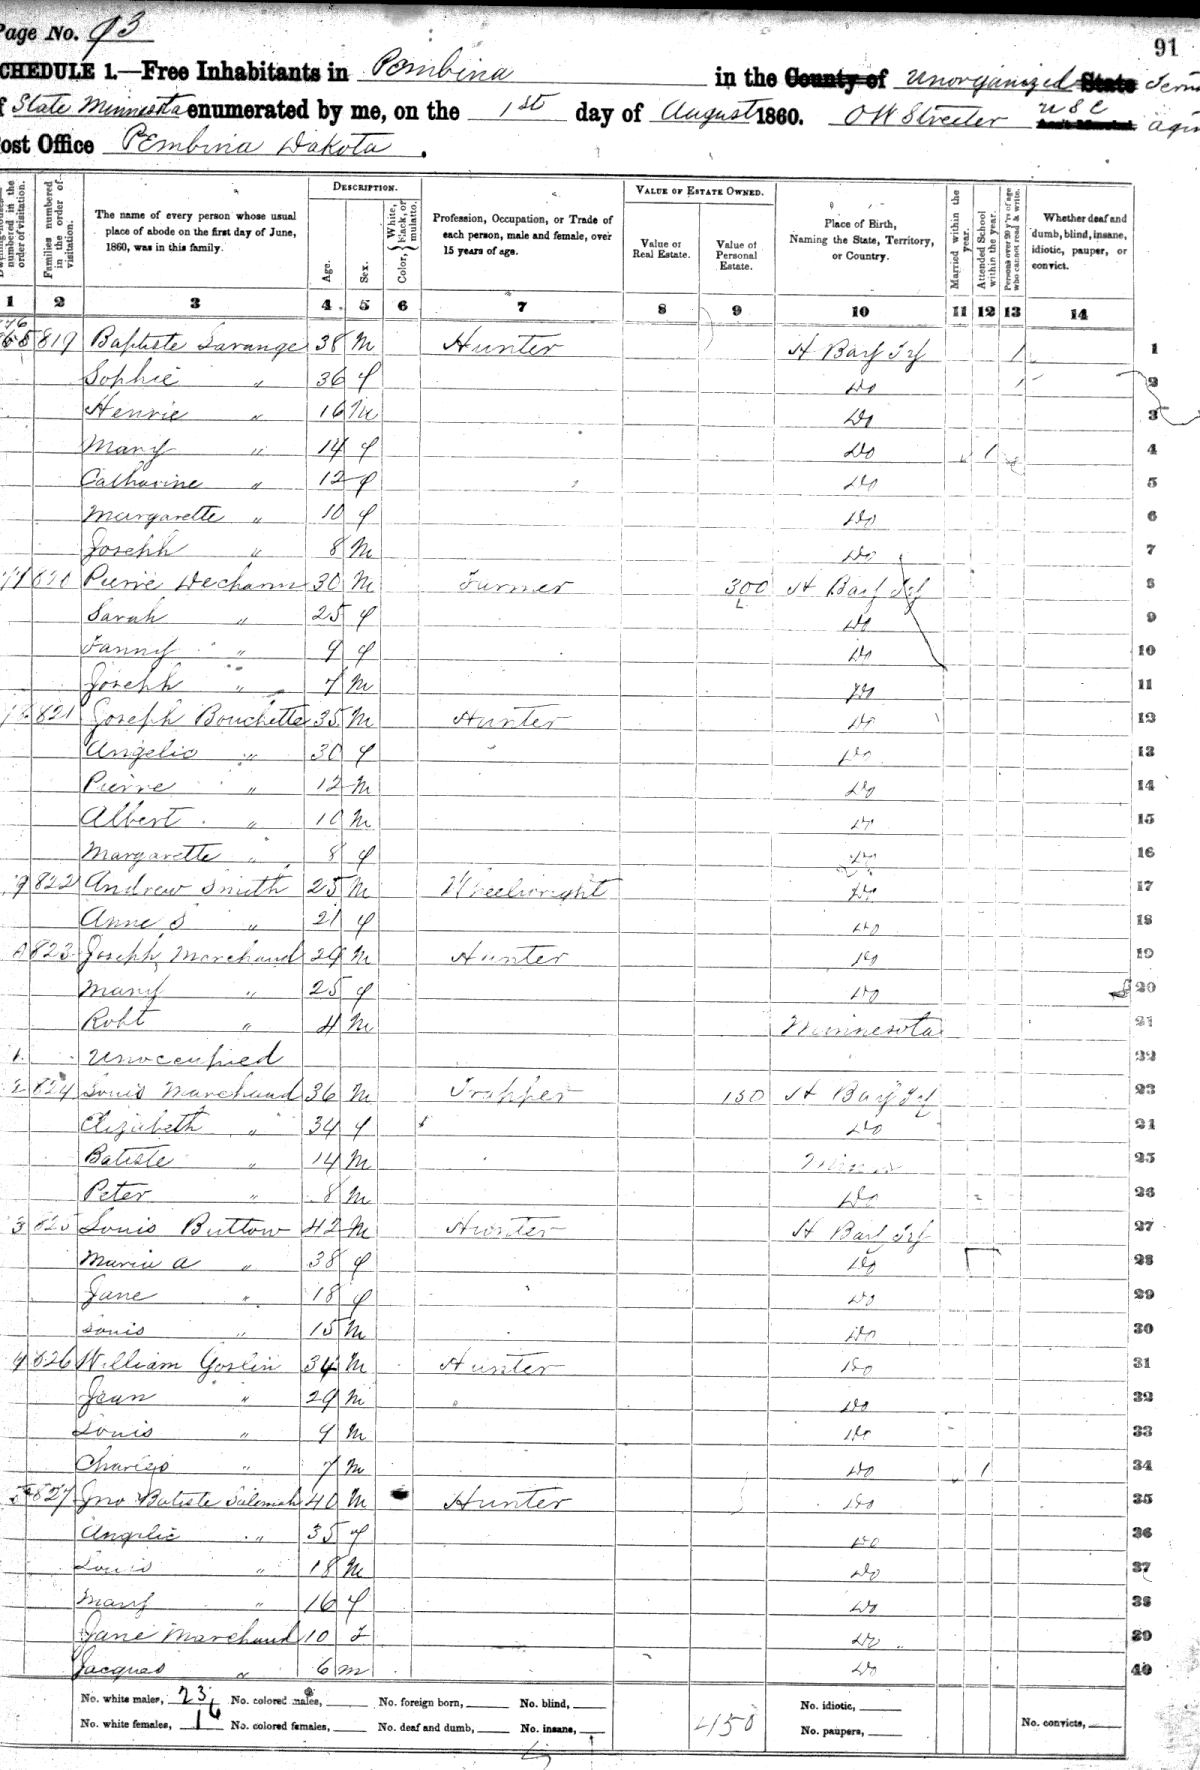 Page No. 93
91
SCHEDULE 1.—Free Inhabitants in Pembina in the County of Unorganized State
of State Minnesota enumerated by me, on the 1st day of August 1860. OW Streeter
Post Office Pembina Dakota.
Dwelling-houses numbered in the order of visitation.
Families numbered in the order of visitation.
The name of every person whose usual place of abode on the first day of June, 1860, was in this family.
DESCRIPTION.
Age.
Sex.
Color, { White, black, or mulatto.
Profession, Occupation, or Trade of each person, male and female, over 15 years of age.
VALUE OF ESTATE OWNED.
Value of Real Estate.
Value of Personal Estate.
Place of Birth, Naming the State, Territory, or Country.
Married within the year.
Attended School within the year.
Persons over 20 y'rs of age who cannot read & write.
Whether deaf and dumb, blind, insane, idiotic, pauper, or convict.
1 2 3 4 5 6 7 8 9 10 11 12 13 14
819 Baptiste Larange 38 M Hunter H Bay Try 1 1
Sophie " 36 f Do 2
Henrie " 16 M Do 3
Mary " 14 f Do 1 4
Catharine " 12 f Do 5
Margarette " 10 f Do 6
Joseph " 8 M Do 7
820 Pierre Decham 30 M Farmer 300 H Bay Try 8
Sarah " 25 f Do 9
Fanny " 9 f Do 10
Joseph " 7 M Do 11
821 Joseph Bouchette 35 M Hunter Do 12
Angelic " 30 f Do 13
Pierre " 12 M Do 14
Albert " 10 M Do 15
Margarette " 8 f Do 16
9 822 Andrew Smith 25 M Wheelwright Do 17
Anne S " 21 f Do 18
0 823 Joseph Marchaud 29 M Hunter Do 19
Mary " 25 f Do 20
Robt " 4 M Minnesota 21
1 Unoccupied 22
2 824 Louis Marchaud 36 M Trapper 150 H Bay Try 23
Elizabeth " 34 f Do 24
Batiste " 14 M 25
Peter " 8 M Do 26
3 825 Louis Buttow 42 M Hunter H Bay Try 27
Maria A " 38 f Do 28
Jane " 18 f Do 29
Louis " 15 M Do 30
4 826 William Goslin 34 M Hunter Do 31
Jean " 29 M Do 32
Louis " 9 M Do 33
Charles " 7 M Do 1 34
5 827 Jno Batiste 40 M Hunter Do 35
Angelic " 35 f Do 36
Louis " 18 M Do 37
Mary " 16 f Do 38
Jane Marchaud 10 f Do 39
Jacques " 6 m Do 40
No. white males, 23 No. colored males, No. foreign born, No. blind, No. idiotic,
No. white females, 16 No. colored females, No. deaf and dumb, No. insane, 450 No. paupers, No. convicts,